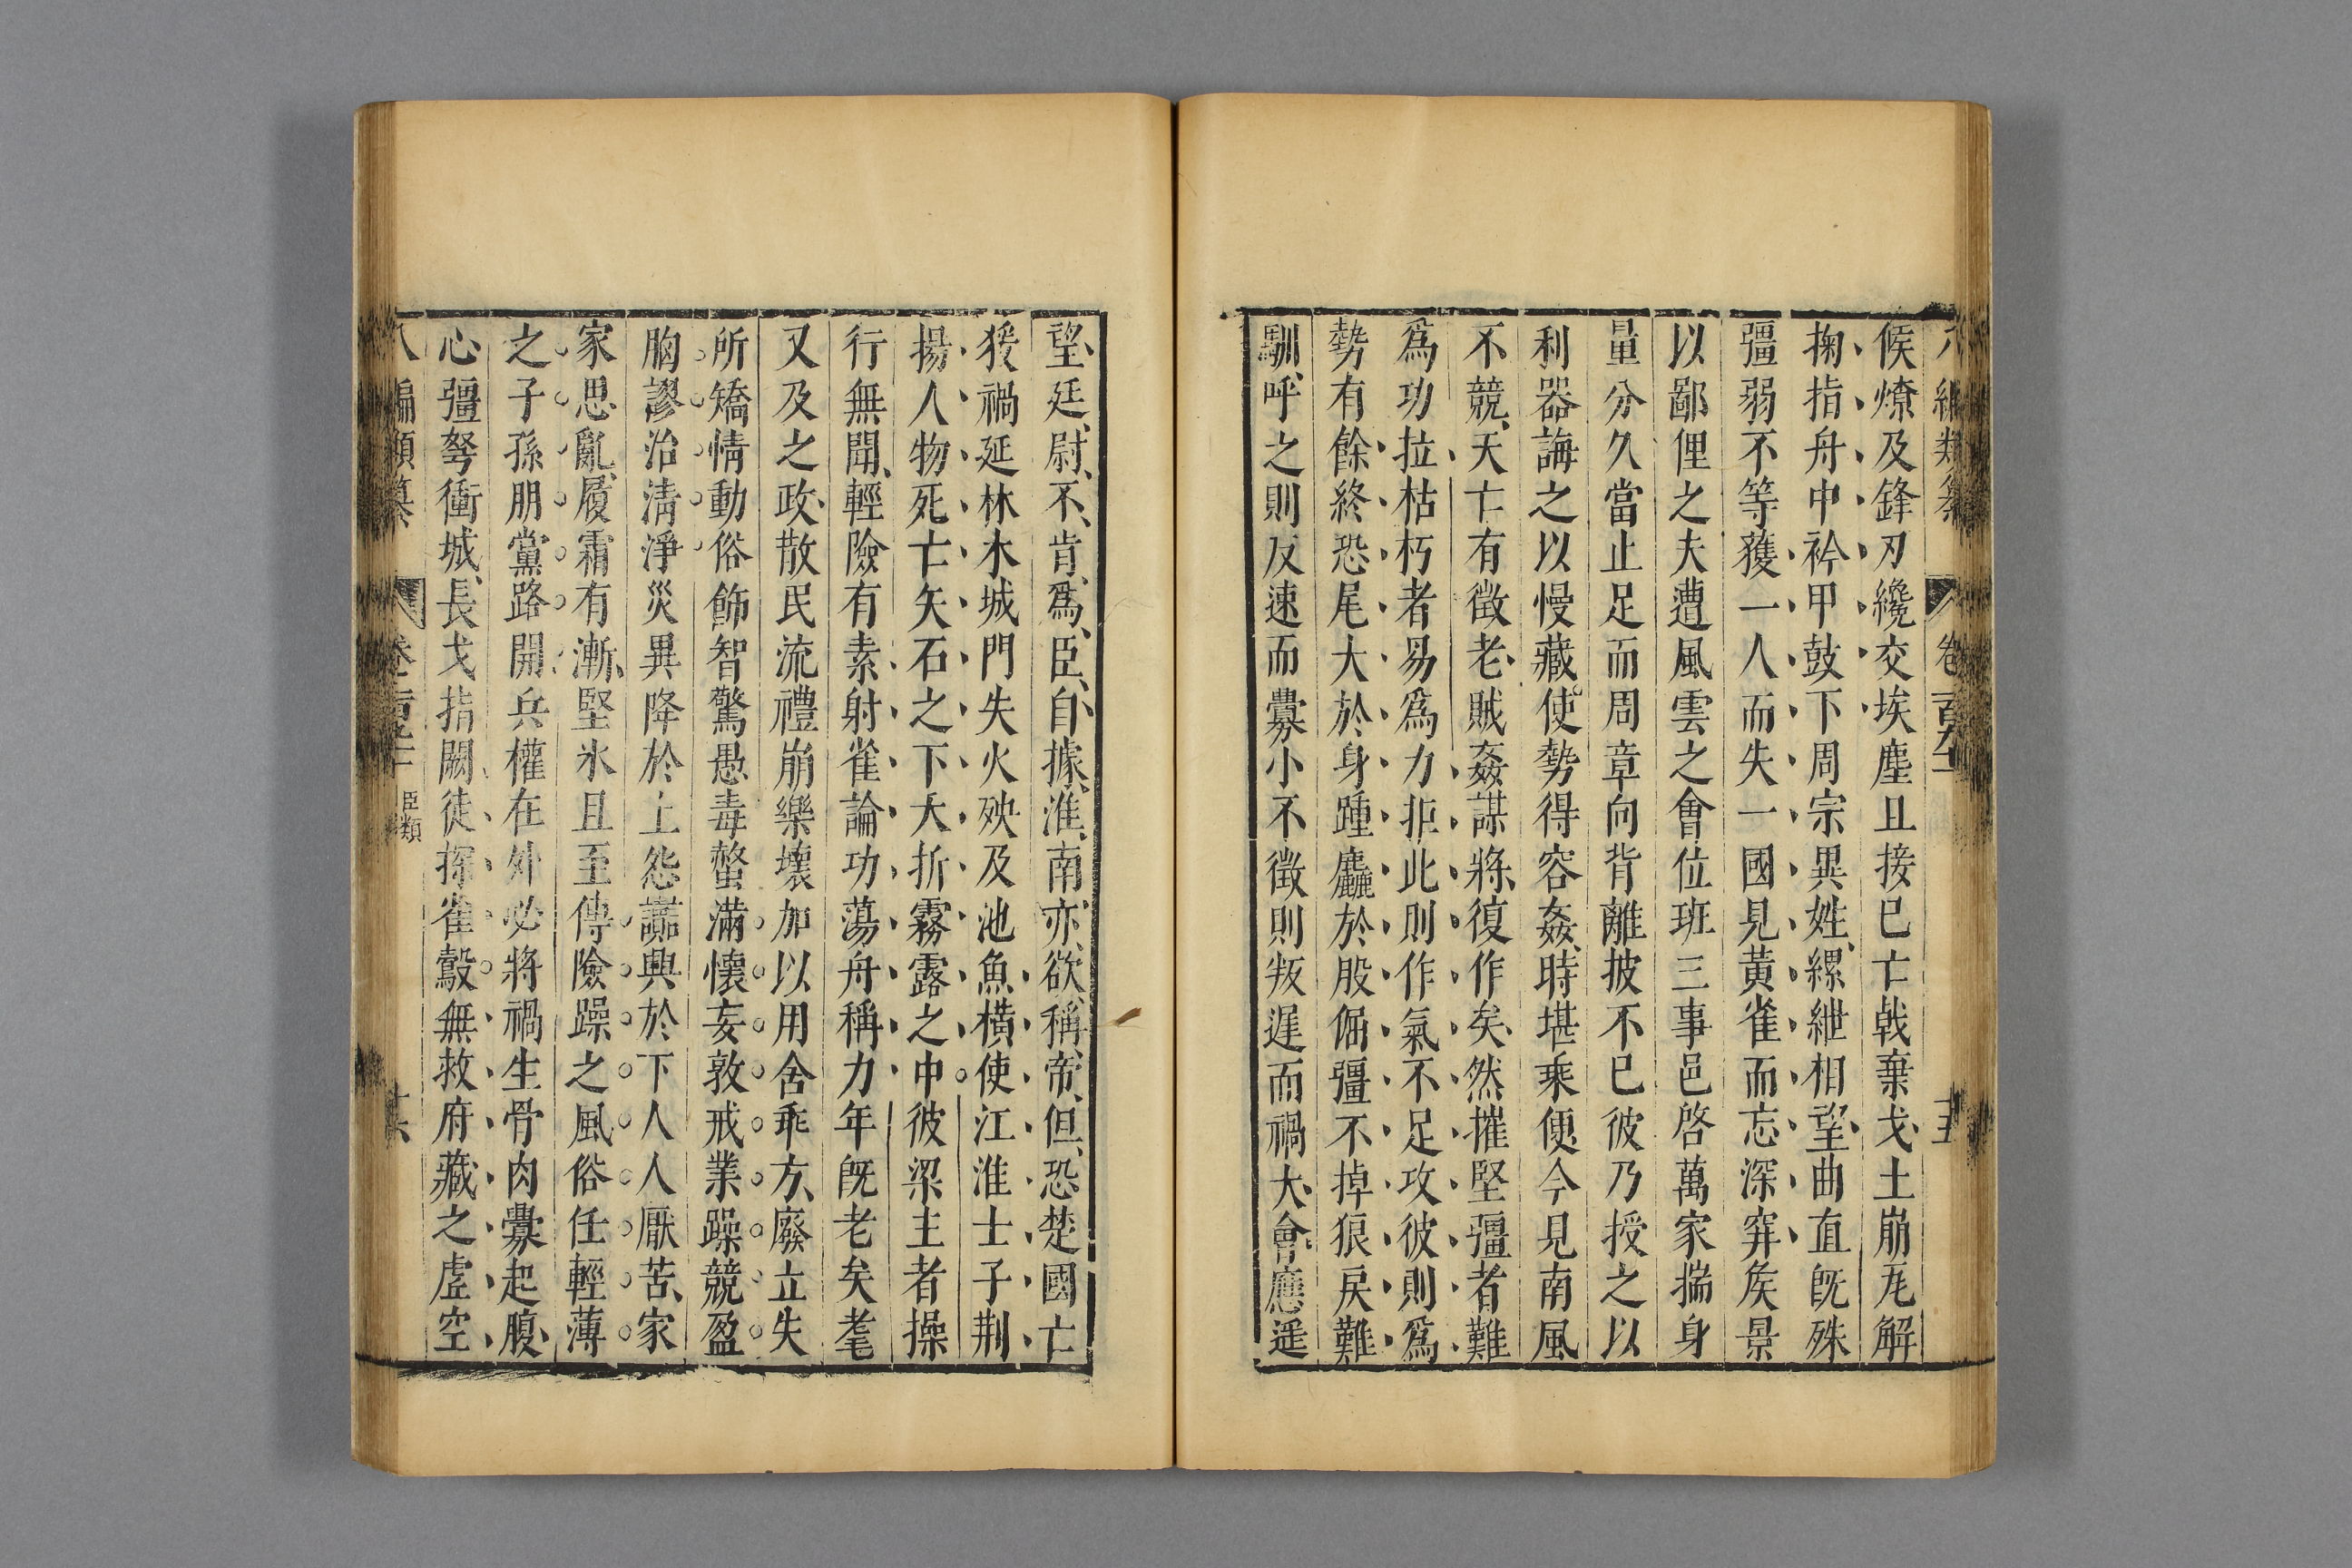 候燎及鋒刃纔交埃塵且接已亡戟棄戈土崩瓦解
掬指舟中衿甲鼓下周宗異姓縲紲相望曲直旣殊
彊弱不等獲一人而失一國見黃雀而忘深穽矦景
以鄙俚之夫遭風雲之會位班三事邑啓萬家揣身
量分久當止足而周章向背離披不已彼乃授之以
利器誨之以慢藏使勢得容姦時堪乘便今見南風
不競天亡有徵老賊姦謀將復作矣然摧堅彊者難
爲功拉枯朽者易爲力非此則作氣不足攻彼則爲
勢有餘終恐尾大於身踵麤於股倔彊不掉狼戾難
馴呼之則反速而釁小不徵則叛遲而禍大會應遥
望廷尉不肯爲臣自據淮南亦欲稱帝但恐楚國亡
猨禍延林木城門失火殃及池魚橫使江淮士子荆
揚人物死亡矢石之下夭折霧露之中彼梁主者操
行無聞輕險有素射雀論功蕩舟稱力年旣老矣耄
又及之政散民流禮崩樂壞加以用舍乖方廢立失
所矯情動俗飾智驚愚毒螫滿懷妄敦戒業躁競盈
胸謬治淸淨災異降於上怨讟興於下人人厭苦家
家思亂履霜有漸堅氷且至傳險躁之風俗任輕薄
之子孫朋黨路開兵權在外必將禍生骨肉釁起腹
心彊弩衝城長戈指闕徒探雀鷇無救府藏之虛空
編類纂
卷
臣類